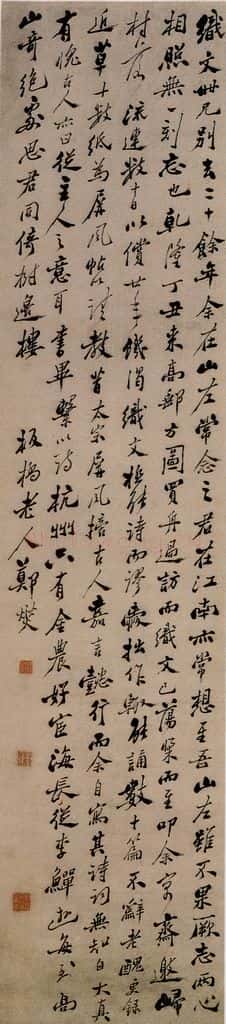 織文世兄別去二十餘年余在山左常念之君在江南亦常想至吾山左雖不果厥志兩心
相照無一刻忘也乾隆丁丑來高郵方圖買舟過訪而織文已蕩槳而至叩余寓齋邀歸
村落流連數十日以償廿年饑渴織文抱能詩而謬愛拙作輒能誦數十篇不辭老醜更錄
近草十數紙為屏風帖請教昔太宗屏風摭古人嘉言懿行而余自寫其詩詞無知自大真
有愧古人亦曰從主人之意耳書畢繫以詩杭州只有金農好宦海長從李鱓遊每到高
山奇絕處思君同倚樹邊樓　板橋老人鄭燮